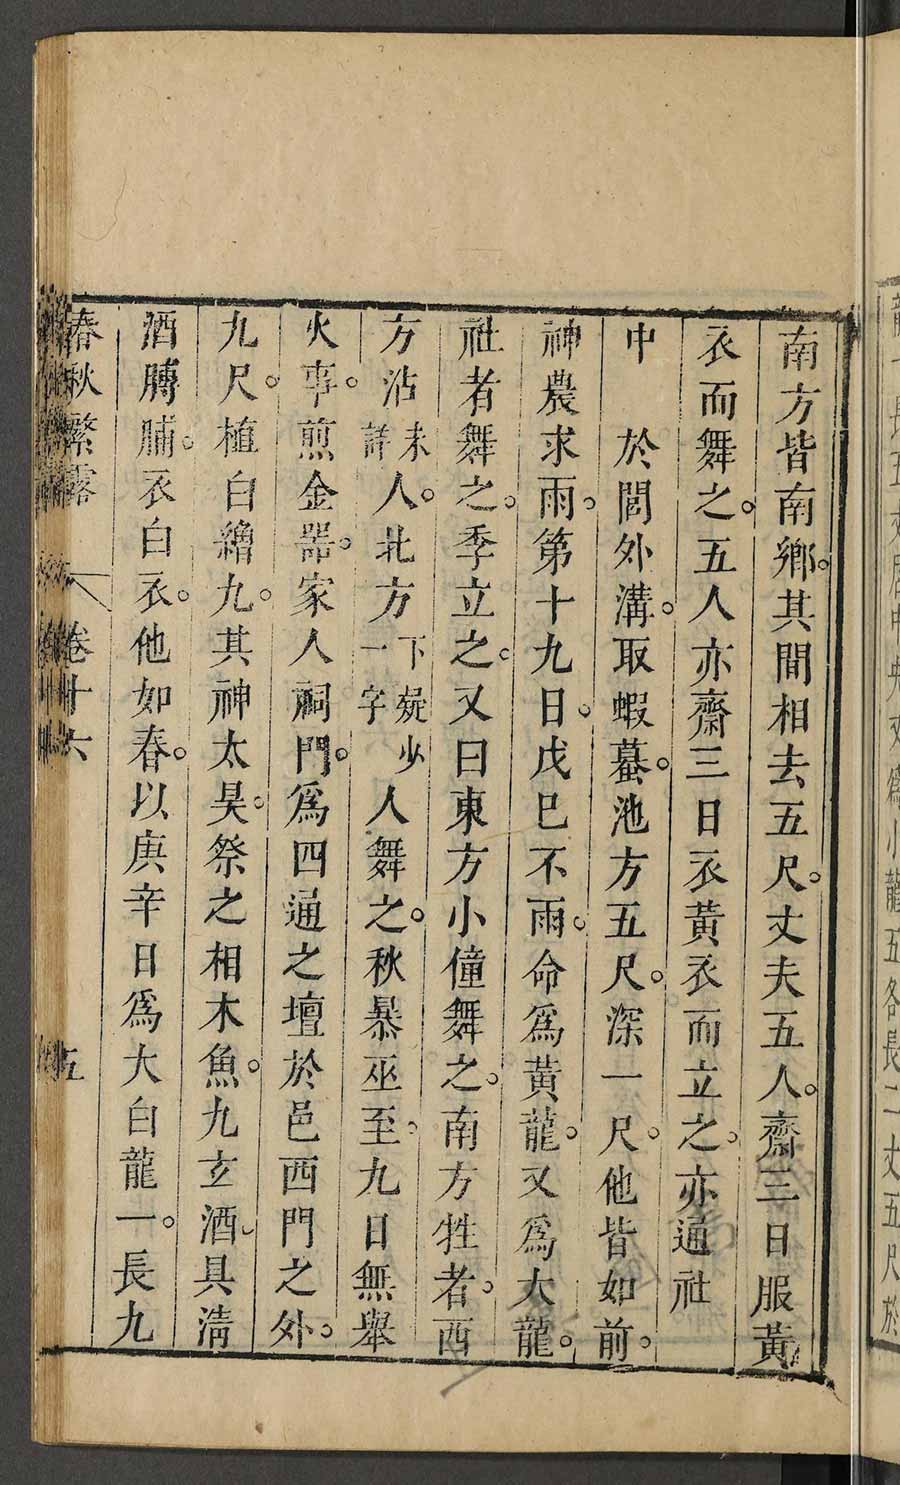 南方皆南鄉。其間相去五尺。丈夫五人。齋三日服黃
衣而舞之。五人亦齋三日衣黃衣而立之。亦通社
中　於閭外溝。取蝦蟇。池方五尺。深一尺。他皆如前。
神農求雨。第十九日。戊巳不雨。命爲黃龍。又爲大龍。
社者舞之。季立之。又曰東方小僮舞之。南方牲者。西
方沾未詳人。北方下疑少一字人舞之。秋暴巫至。九日無舉
火事。煎金器。家人祠門。爲四通之壇於邑西門之外。
九尺。植白繒九。其神太昊。祭之相木魚。九玄酒。具淸
酒膊脯。衣白衣。他如春。以庚辛日爲大白龍一。長九
春秋繁露　卷十六　五